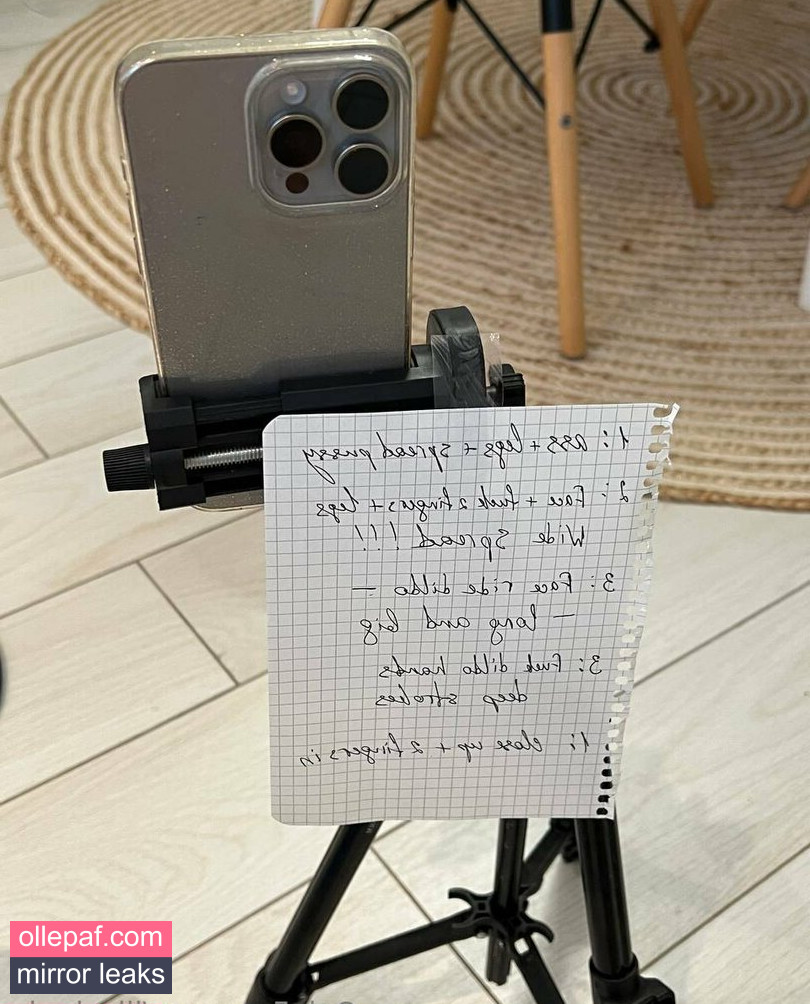 1: ass + legs + spread pussy
2: Face + fuck 2 fingers + legs
Wide Spread !!!
3: Face ride dildo —
— long and big
3: Fuck dildo hands
deep strokes
1: close up + 2 fingers in
ollepaf.com
mirror leaks